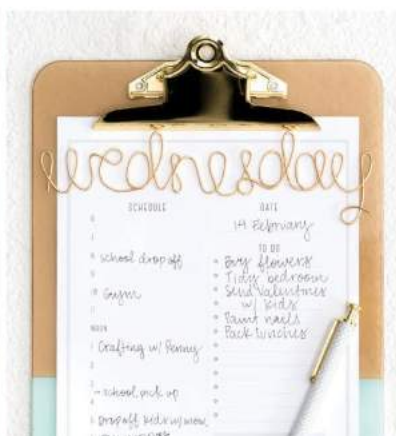 wednesday
SCHEDULE
6
7
8 school drop off
9
10 Gym
11
NOON
1 Crafting w/ Penny
2
3 school pick up
4
5 Drop off kids w/ mom
6
DATE
14 February
TO DO
Buy flowers
Tidy bedroom
Send Valentines
w/ kids
Paint nails
Pack lunches